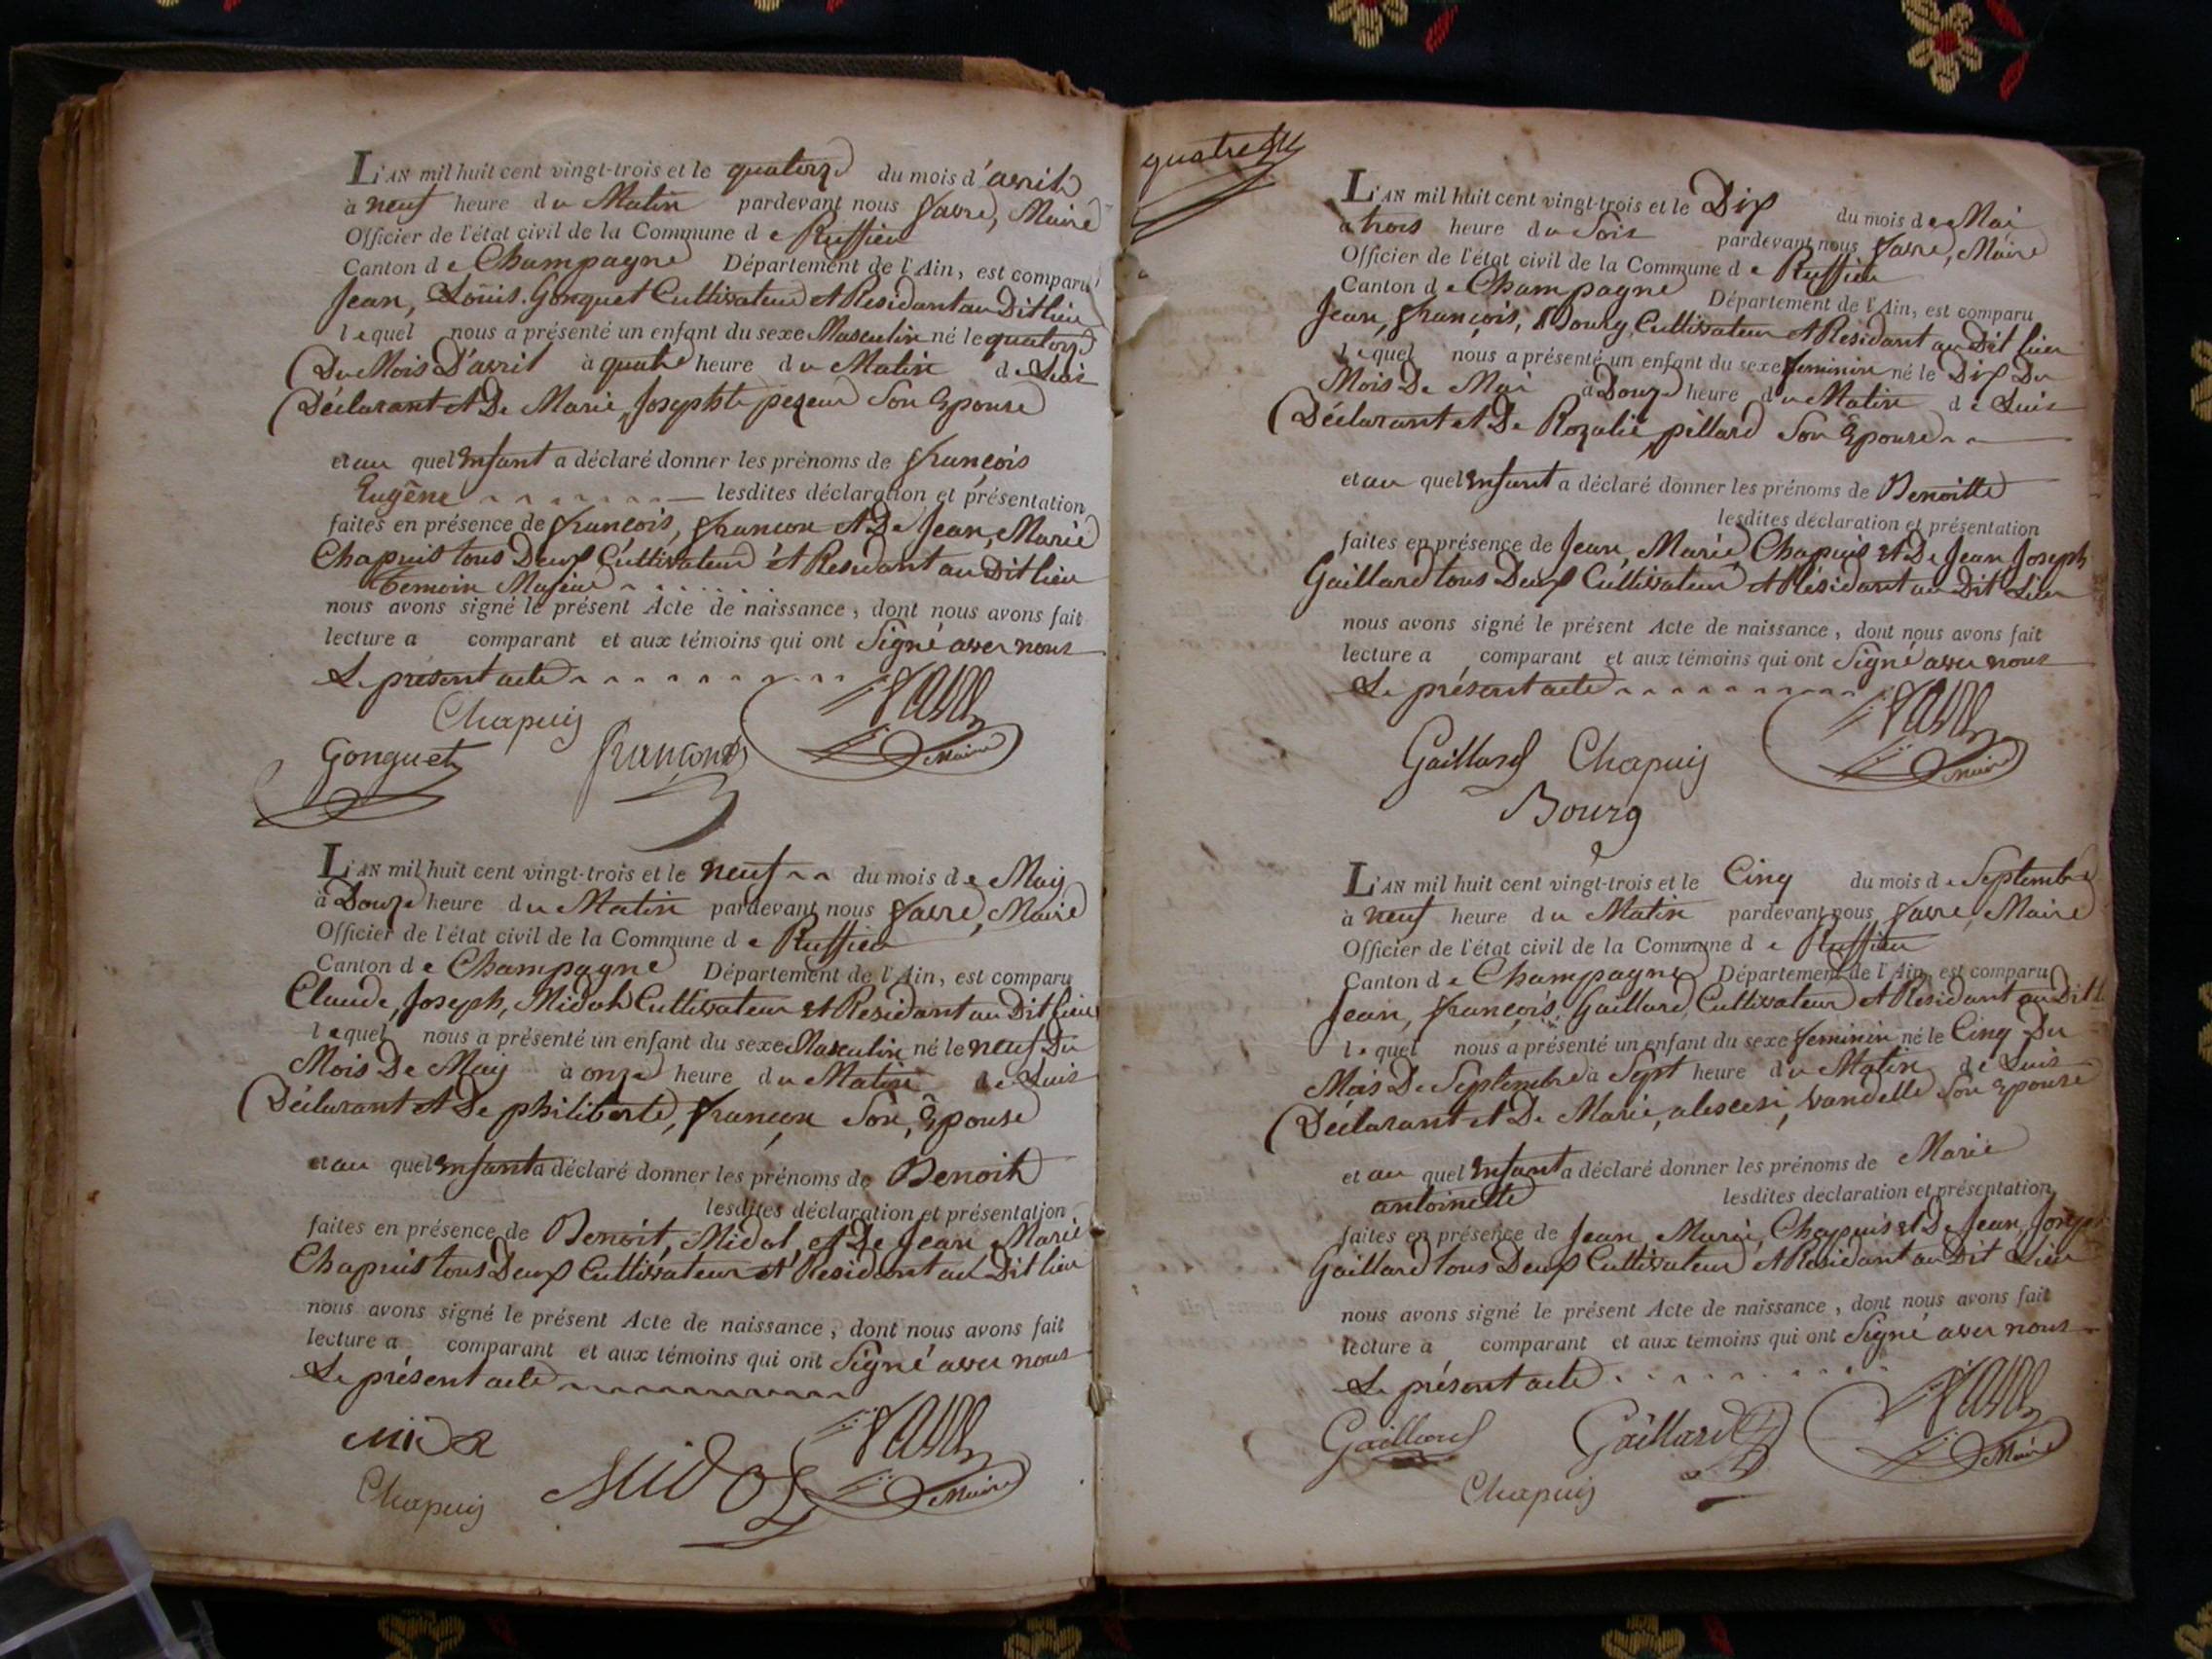 L'AN mil huit cent vingt-trois et le quatorze du mois d'avril
à neuf heure du Matin pardevant nous favre, Maire
Officier de l'état civil de la Commune de Ruffieu
Canton de Champagne Département de l'Ain, est comparu
Jean, Louis Gonguet Cultivateur Et Residant au Dit lieu
lequel nous a présenté un enfant du sexe Masculin né le quatorze
Du Mois D'avril à quatre heure du Matin de Luis
Déclarant Et De Marie, Josephte peseur Son Epouse
et au quel Enfant a déclaré donner les prénoms de françois
Eugêne lesdites déclaration et présentation
faites en présence de françois, françon Et De Jean, Marie
Chapuis tous Deux Cultivateur Et Residant au Dit lieu
Temoin Majeur
nous avons signé le présent Acte de naissance, dont nous avons fait
lecture a comparant et aux témoins qui ont Signé avec nous
Le présent acte
Chapuis favre
Gonguet françon Maire
L'AN mil huit cent vingt-trois et le neuf du mois de May
à Douze heure du Matin pardevant nous favre, Maire
Officier de l'état civil de la Commune de Ruffieu
Canton de Champagne Département de l'Ain, est comparu
Claude, Joseph, Midol Cultivateur Et Residant au Dit lieu
lequel nous a présenté un enfant du sexe Masculin né le neuf Du
Mois De May à onze heure du Matin de Luis
Déclarant Et De philiberte, françon Son, Epouse
et au quel Enfant a déclaré donner les prénoms de Benoit
lesdites déclaration et présentation
faites en présence de Benoit, Midol, et De Jean, Marie
Chapuis tous Deux Cultivateur Et Residant au Dit lieu
nous avons signé le présent Acte de naissance, dont nous avons fait
lecture a comparant et aux témoins qui ont Signé avec nous
Le présent acte
favre
Midol Maire
Chapuis
quatre
L'AN mil huit cent vingt-trois et le Dix du mois de Mai
à trois heure du Soir pardevant nous favre, Maire
Officier de l'état civil de la Commune de Ruffieu
Canton de Champagne Département de l'Ain, est comparu
Jean, françois, Bourg, Cultivateur Et Residant au Dit lieu
lequel nous a présenté un enfant du sexe feminin né le Dix Du
Mois De Mai à Douze heure du Matin de Luis
Déclarant Et De Rozalie pillard Son Epouse
et au quel Enfant a déclaré donner les prénoms de Benoitte
lesdites déclaration et présentation
faites en présence de Jean, Marie Chapuis Et De Jean Joseph
Gaillard tous Deux Cultivateur Et Résidant au Dit Lieu
nous avons signé le présent Acte de naissance, dont nous avons fait
lecture a comparant et aux témoins qui ont Signé avec nous
Le présent acte
favre
Gaillard Chapuis Maire
Bourg
L'AN mil huit cent vingt-trois et le Cinq du mois de Septembre
à neuf heure du Matin pardevant nous favre, Maire
Officier de l'état civil de la Commune de Ruffieu
Canton de Champagne Département de l'Ain, est comparu
Jean, françois, Gaillard Cultivateur Et Residant au Dit
lequel nous a présenté un enfant du sexe feminin né le Cinq Du
Mois De Septembre à Sept heure du Matin de Luis
Déclarant Et De Marie, vandelle Son Epouse
et au quel Enfant a déclaré donner les prénoms de Marie
antoinette lesdites déclaration et présentation
faites en présence de Jean, Marie, Chapuis et De Jean, Joseph
Gaillard tous Deux Cultivateur Et Residant au Dit Lieu
nous avons signé le présent Acte de naissance, dont nous avons fait
lecture a comparant et aux témoins qui ont Signé avec nous
Le présent acte
favre
Gaillard Gaillard Maire
Chapuis